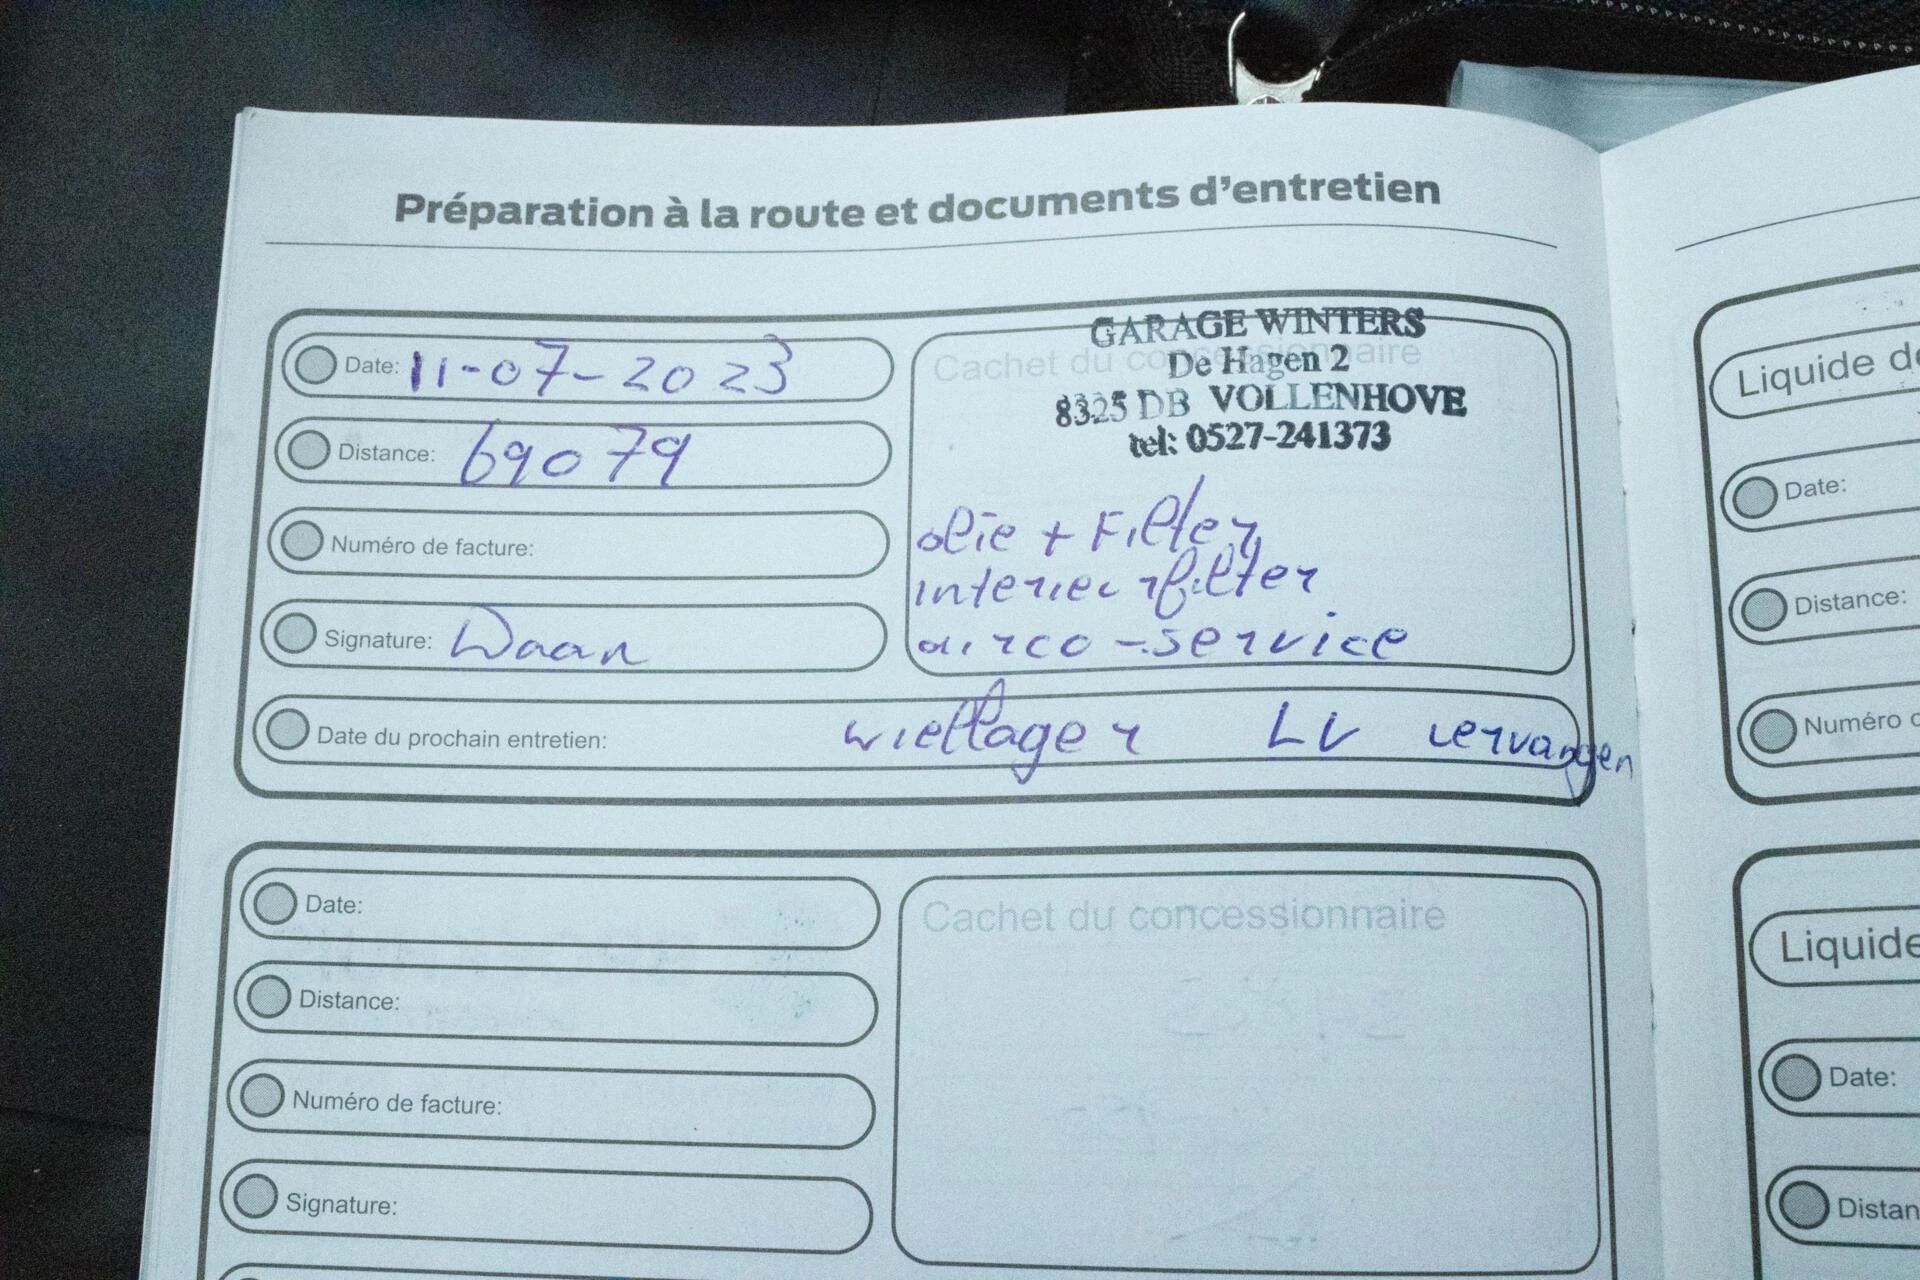 Préparation à la route et documents d'entretien
Date: 11-07-2023
Distance: 69079
Numéro de facture:
Signature: Daan
Date du prochain entretien:
Cachet du concessionnaire
GARAGE WINTERS
De Hagen 2
8325 DB VOLLENHOVE
tel: 0527-241373
olie + Filter
interieurfilter
airco-service
wiellager LV vervangen
Date:
Distance:
Numéro de facture:
Signature:
Cachet du concessionnaire
Liquide de
Date:
Distance:
Numéro
Liquide
Date:
Distan